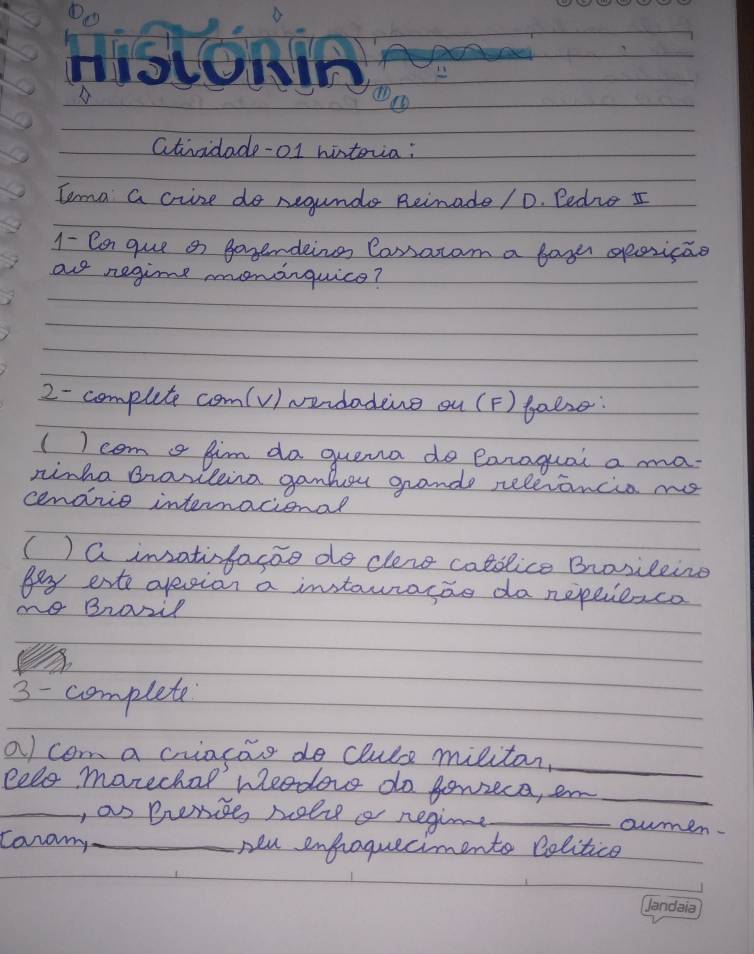 História
Atividade-01 historia:
Tema: A crise do segundo Reinado/D. Pedro II
1- Por que os fazendeiros Passaram a fazer oposição
ao regime monárquico?
2- complete com (V) verdadeiro ou (F) falso:
( ) com o fim da guerra do Paraguai a ma-
rinha Brasileira ganhou grande relevância no
cenário internacional
( ) A insatisfação do clero católico Brasileiro
fez este apoiar a instauração da república
no Brasil
3- complete:
a) com a criação do Clube militar, ______
Pelo Marechal Deodoro da fonseca, em ______
______, as Pressões sobre o regime ______ aumen-
taram, ______ seu enfraquecimento Político
Jandaia